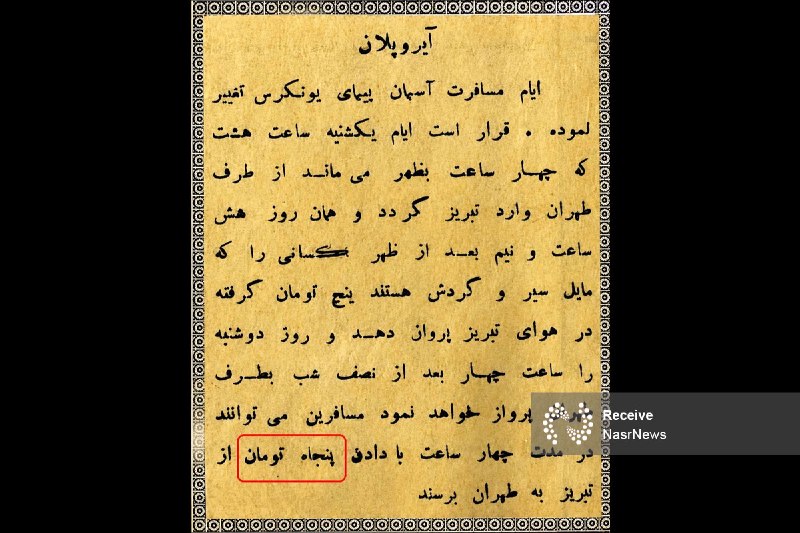 آیروپلان
ایام مسافرت آسمان پیمای یونکرس تغییر
نموده . قرار است ایام یکشنبه ساعت هشت
که چهار ساعت بظهر می ماند از طرف
طهران وارد تبریز گردد و همان روز هش
ساعت و نیم بعد از ظهر کسانی را که
مایل سیر و گردش هستند پنج تومان گرفته
در هوای تبریز پرواز دهد و روز دوشنبه
را ساعت چهار بعد از نصف شب بطرف
پرواز خواهد نمود مسافرین می توانند
در مدت چهار ساعت با دادن پنجاه تومان از
تبریز به طهران برسند
Receive
NasrNews